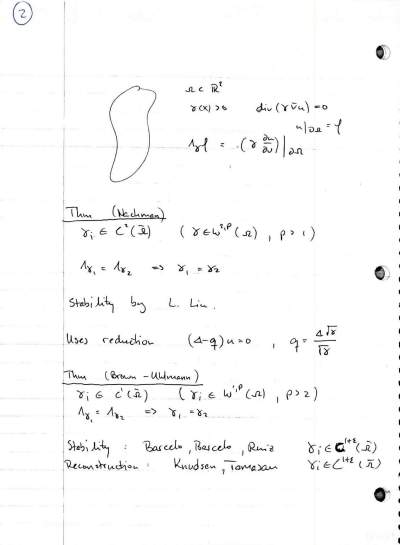 2
Ω ⊂ ℝ²
γ(x) > 0   div(γ∇u) = 0
u|∂Ω = f
Λγf = (γ ∂u/∂ν)|∂Ω
Thm (Nachman)
γi ∈ C²(Ω̄)   (γ ∈ W²,ᵖ(Ω), p > 1)
Λγ₁ = Λγ₂ ⇒ γ₁ = γ₂
Stability by L. Liu.
Uses reduction   (Δ-q)u = 0 , q = Δ√γ/√γ
Thm (Brown - Uhlmann)
γi ∈ C¹(Ω̄)   (γi ∈ W¹,ᵖ(Ω), p > 2)
Λγ₁ = Λγ₂ ⇒ γ₁ = γ₂
Stability : Barcelo, Barcelo, Ruiz   γi ∈ C¹⁺ᵋ(Ω̄)
Reconstruction : Knudsen, Tamasan   γi ∈ C¹⁺ᵋ(Ω̄)